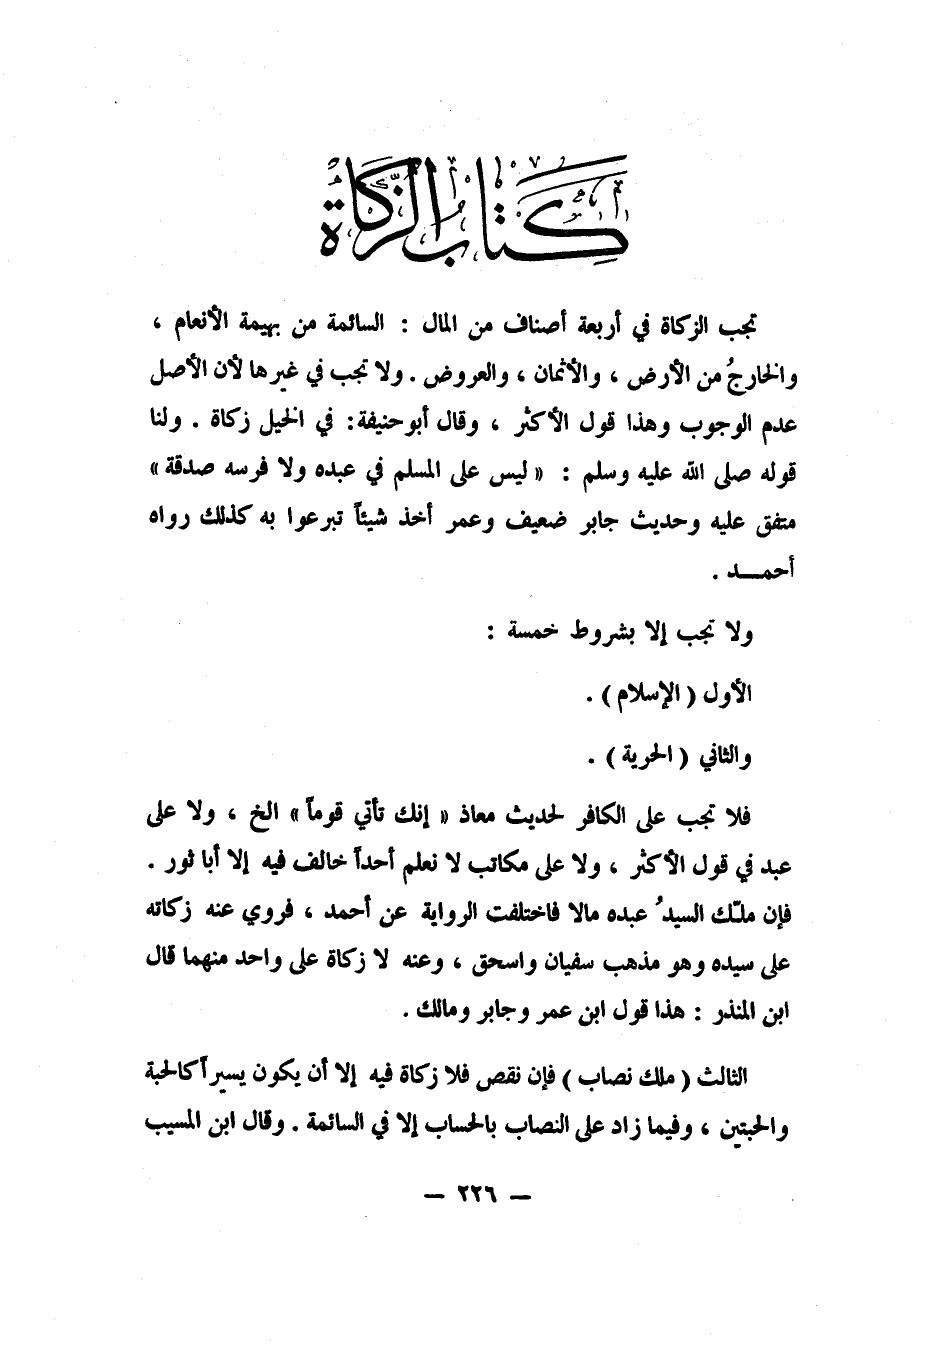 كتاب الزكاة
تجب الزكاة في أربعة أصناف من المال : السائمة من بهيمة الأنعام ،
والخارجُ من الأرض ، والأثمان ، والعروض . ولا تجب في غيرها لأن الأصل
عدم الوجوب وهذا قول الأكثر ، وقال أبو حنيفة : في الخيل زكاة . ولنا
قوله صلى الله عليه وسلم : « ليس على المسلم في عبده ولا فرسه صدقة »
متفق عليه وحديث جابر ضعيف وعمر أخذ شيئاً تبرعوا به كذلك رواه
أحمــد .
ولا تجب إلا بشروط خمسة :
الأول ( الإسلام ) .
والثاني ( الحرية ) .
فلا تجب على الكافر لحديث معاذ « إنك تأتي قوماً » الخ ، ولا على
عبد في قول الأكثر ، ولا على مكاتب لا نعلم أحداً خالف فيه إلا أبا ثور .
فإن ملّك السيدُ عبده مالا فاختلفت الرواية عن أحمد ، فروي عنه زكاته
على سيده وهو مذهب سفيان واسحق ، وعنه لا زكاة على واحد منهما قال
ابن المنذر : هذا قول ابن عمر وجابر ومالك .
الثالث ( ملك نصاب ) فإن نقص فلا زكاة فيه إلا أن يكون يسيراً كالحبة
والحبتين ، وفيما زاد على النصاب بالحساب إلا في السائمة . وقال ابن المسيب
— ٢٢٦ —